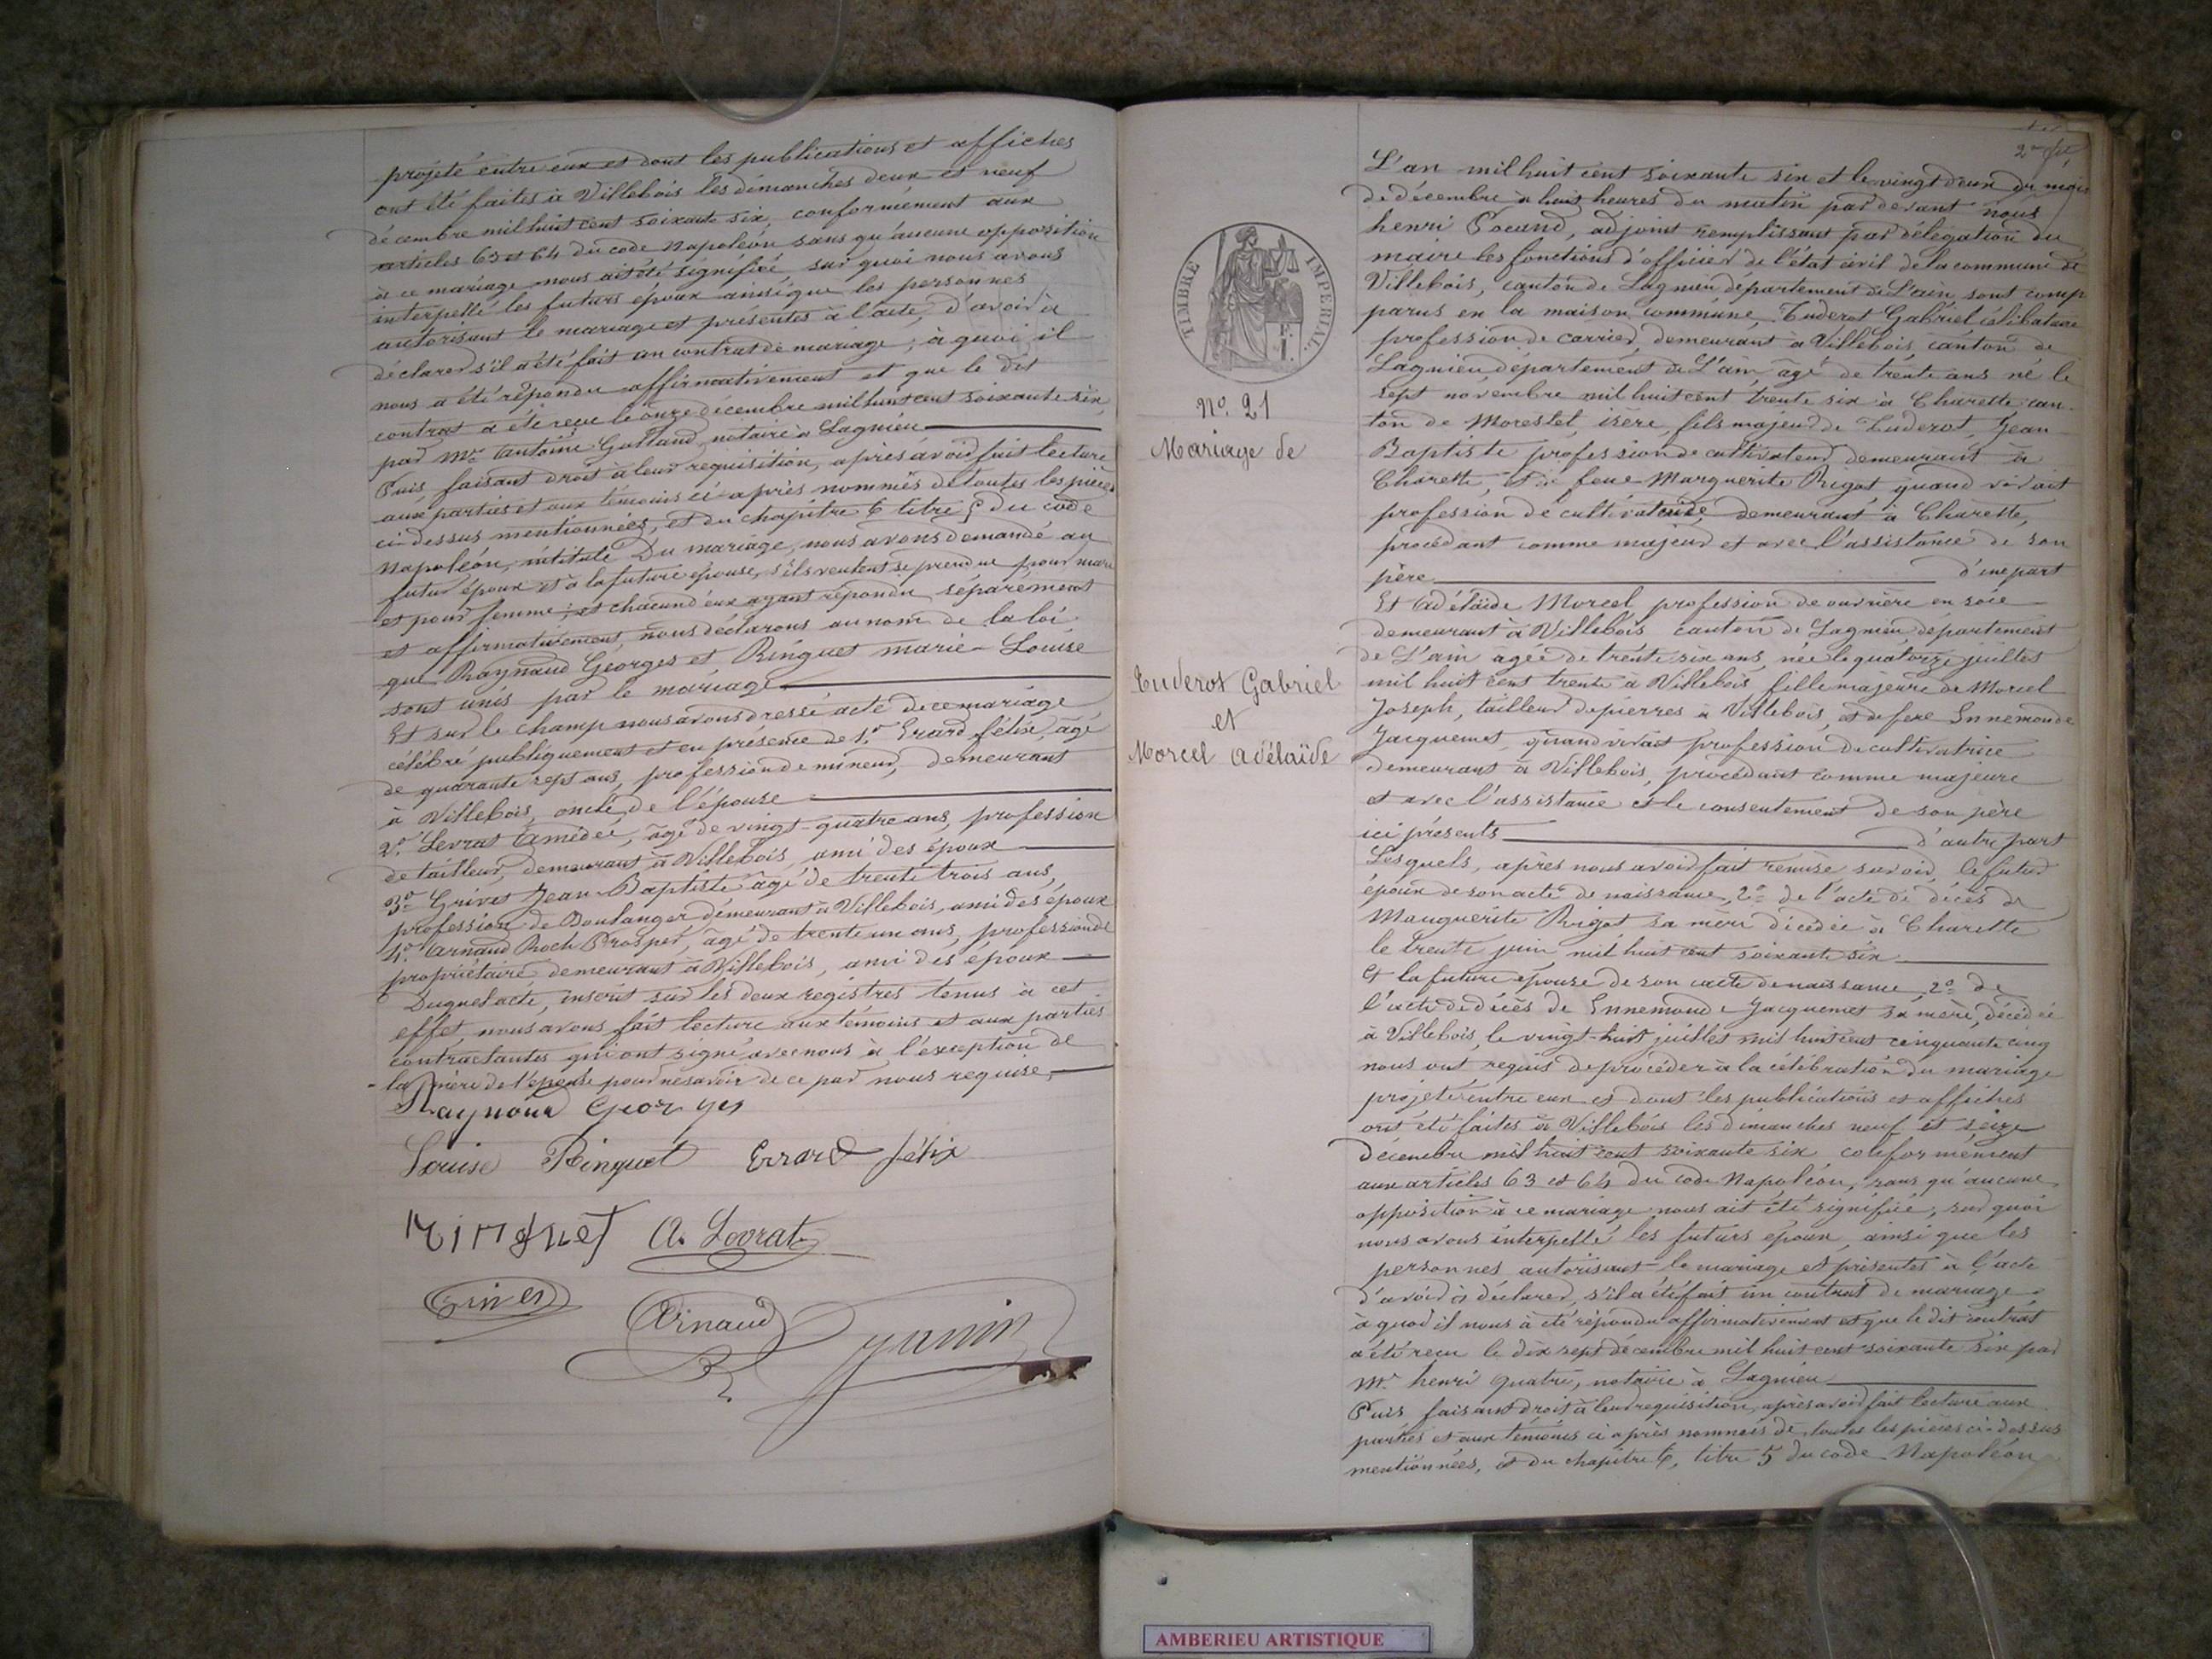 projeté entre eux et dont les publications et affiches
ont été faites à Villebois les dimanches deux et neuf
décembre mil huit cent soixante six, conformément aux
articles 63 et 64 du code Napoléon sans qu'aucune opposition
à ce mariage nous ait été signifiée, sur quoi nous avons
interpellé les futurs époux ainsi que les personnes
autorisant le mariage et présentes à l'acte, d'avoir à
déclarer s'il a été fait un contrat de mariage, à quoi il
nous a été répondu affirmativement et que le dit
contrat a été reçu le onze décembre mil huit cent soixante six,
par Me Antoine Galland, notaire à Lagnieu
Puis faisant droit à leur requisition, après avoir fait lecture
aux parties et aux témoins ci-après nommés de toutes les pièces
ci-dessus mentionnées, et du chapitre 6 titre 5 du code
Napoléon, intitulé Du mariage, nous avons demandé au
futur époux et à la future épouse, s'ils veulent se prendre pour mari
et pour femme; et chacun d'eux ayant répondu séparément
et affirmativement, nous déclarons au nom de la loi
que Raynaud Georges et Ringuet marie-Louise
sont unis par le mariage
Et sur le champ nous avons dressé acte de ce mariage
célébré publiquement et en présence de 1º Erard félix, âgé
de quarante sept ans, profession de mineur, demeurant
à Villebois, oncle de l'épouse
2º Levrat Amédée, âgé de vingt-quatre ans, profession
de tailleur, demeurant à Villebois, ami des époux
3º Grivet Jean-Baptiste âgé de trente trois ans,
profession de Boulanger demeurant à Villebois, ami des époux
4º Arnaud Roch Prosper, âgé de trente un ans, profession de
propriétaire demeurant à Villebois, ami des époux
Duquel acte, inscrit sur les deux registres tenus à cet
effet, nous avons fait lecture aux témoins et aux parties
contractantes qui ont signé avec nous à l'exception de
la mère de l'épouse pour ne savoir de ce par nous requise,
Raynaud Georges
Louise Ringuet Errard félix
Ringuet A. Levrat
Grivet
Arnaud
R.
TIMBRE IMPERIAL
No. 21
Mariage de
Tuderot Gabriel
et
Morcel Adélaïde
L'an mil huit cent soixante six et le vingt deux du mois
de décembre à huit heures du matin par devant nous
henri Pocand, adjoint remplissant par délégation du
maire les fonctions d'officier de l'état civil de la commune de
Villebois, canton de Lagnieu département de L'ain, sont comp
parus en la maison commune, Tuderot Gabriel célibataire
profession de carrier, demeurant à Villebois canton de
Lagnieu, département de L'ain âgé de trente ans né le
sept novembre mil huit cent trente six à Charette can-
ton de Morestel, isère, fils majeur de Tuderot, Jean
Baptiste profession de cultivateur demeurant à
Charette, et de feue Marguerite Rigot, quand vivait
profession de cultivatrice, demeurant à Charette,
procédant comme majeur et avec l'assistance de son
père d'une part
Et Adélaïde Morcel, profession de ouvrière en soie
demeurant à Villebois canton de Lagnieu département
de L'ain âgée de trente six ans, née le quatorze juillet
mil huit cent trente à Villebois fille majeure de Morcel
Joseph, tailleur de pierres à Villebois, et de feue Innemonde
Jacquemet, quand vivait profession de cultivatrice
demeurant à Villebois, procédant comme majeure
et avec l'assistance et le consentement de son père
ici présents d'autre part
Lesquels, après nous avoir fait remise savoir, le futur
époux de son acte de naissance, 2º de l'acte de décès de
Mauguerite Rigot sa mère décédée à Charette
le trente juin mil huit cent soixante six
Et la future épouse de son acte de naissance, 2º de
l'acte de décès de Innemonde Jacquemet sa mère, décédée
à Villebois, le vingt-huit juillet mil huit cent cinquante cinq
nous ont requis de procéder à la célébration du mariage
projeté entre eux et dont les publications et affiches
ont été faites à Villebois les dimanches neuf et seize
décembre mil huit cent soixante six conformément
aux articles 63 et 64 du code Napoléon, sans qu'aucune
opposition à ce mariage nous ait été signifiée, sur quoi
nous avons interpellé les futurs époux, ainsi que les
personnes autorisant le mariage et présentes à l'acte
d'avoir à déclarer, s'il a été fait un contrat de mariage
à quoi il nous à été répondu affirmativement et que le dit contrat
a été reçu le dix sept décembre mil huit cent soixante six par
Me henri quatre, notaire à Lagnieu
Puis faisant droit à leur requisition, après avoir fait lecture aux
parties et aux témoins ci après nommés de toutes les pièces ci-dessus
mentionnées, et du chapitre 6, titre 5 du code Napoléon
AMBERIEU ARTISTIQUE